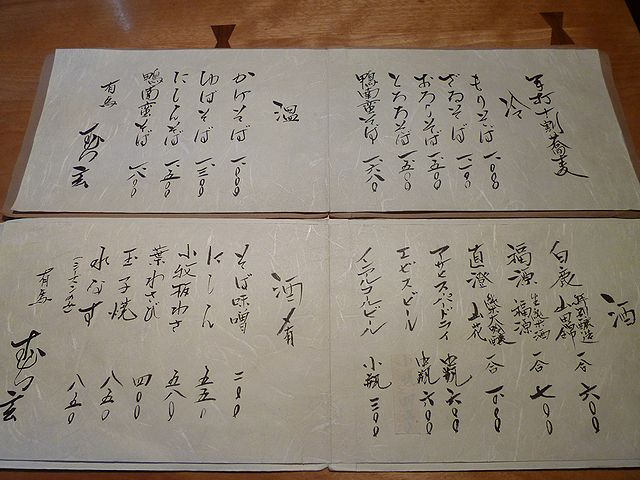 手打十割蕎麦
冷
もりそば 一、〇〇〇
ざるそば 一、一〇〇
おろしそば 一、五〇〇
とろろそば 一、五〇〇
鴨南蛮そば 一、六八〇
温
かけそば 一、〇〇〇
ゆばそば 一、三〇〇
にしんそば 一、五〇〇
鴨南蛮そば 一、六八〇
有馬
玄
酒
白鹿 特別醸造 山田錦 一合 六〇〇
福源 生純米酒 福源 一合 七〇〇
直澄 純米大吟醸 山花 一合
アサヒスーパードライ 中瓶 六〇〇
エビスビール 中瓶 六〇〇
ノンアルコールビール 小瓶 三〇〇
酒肴
そば味噌 二〇〇
にしん 五五〇
小紋板わさ 五八〇
葉わさび 四〇〇
玉子焼 八五〇
水なす 八五〇
有馬
玄